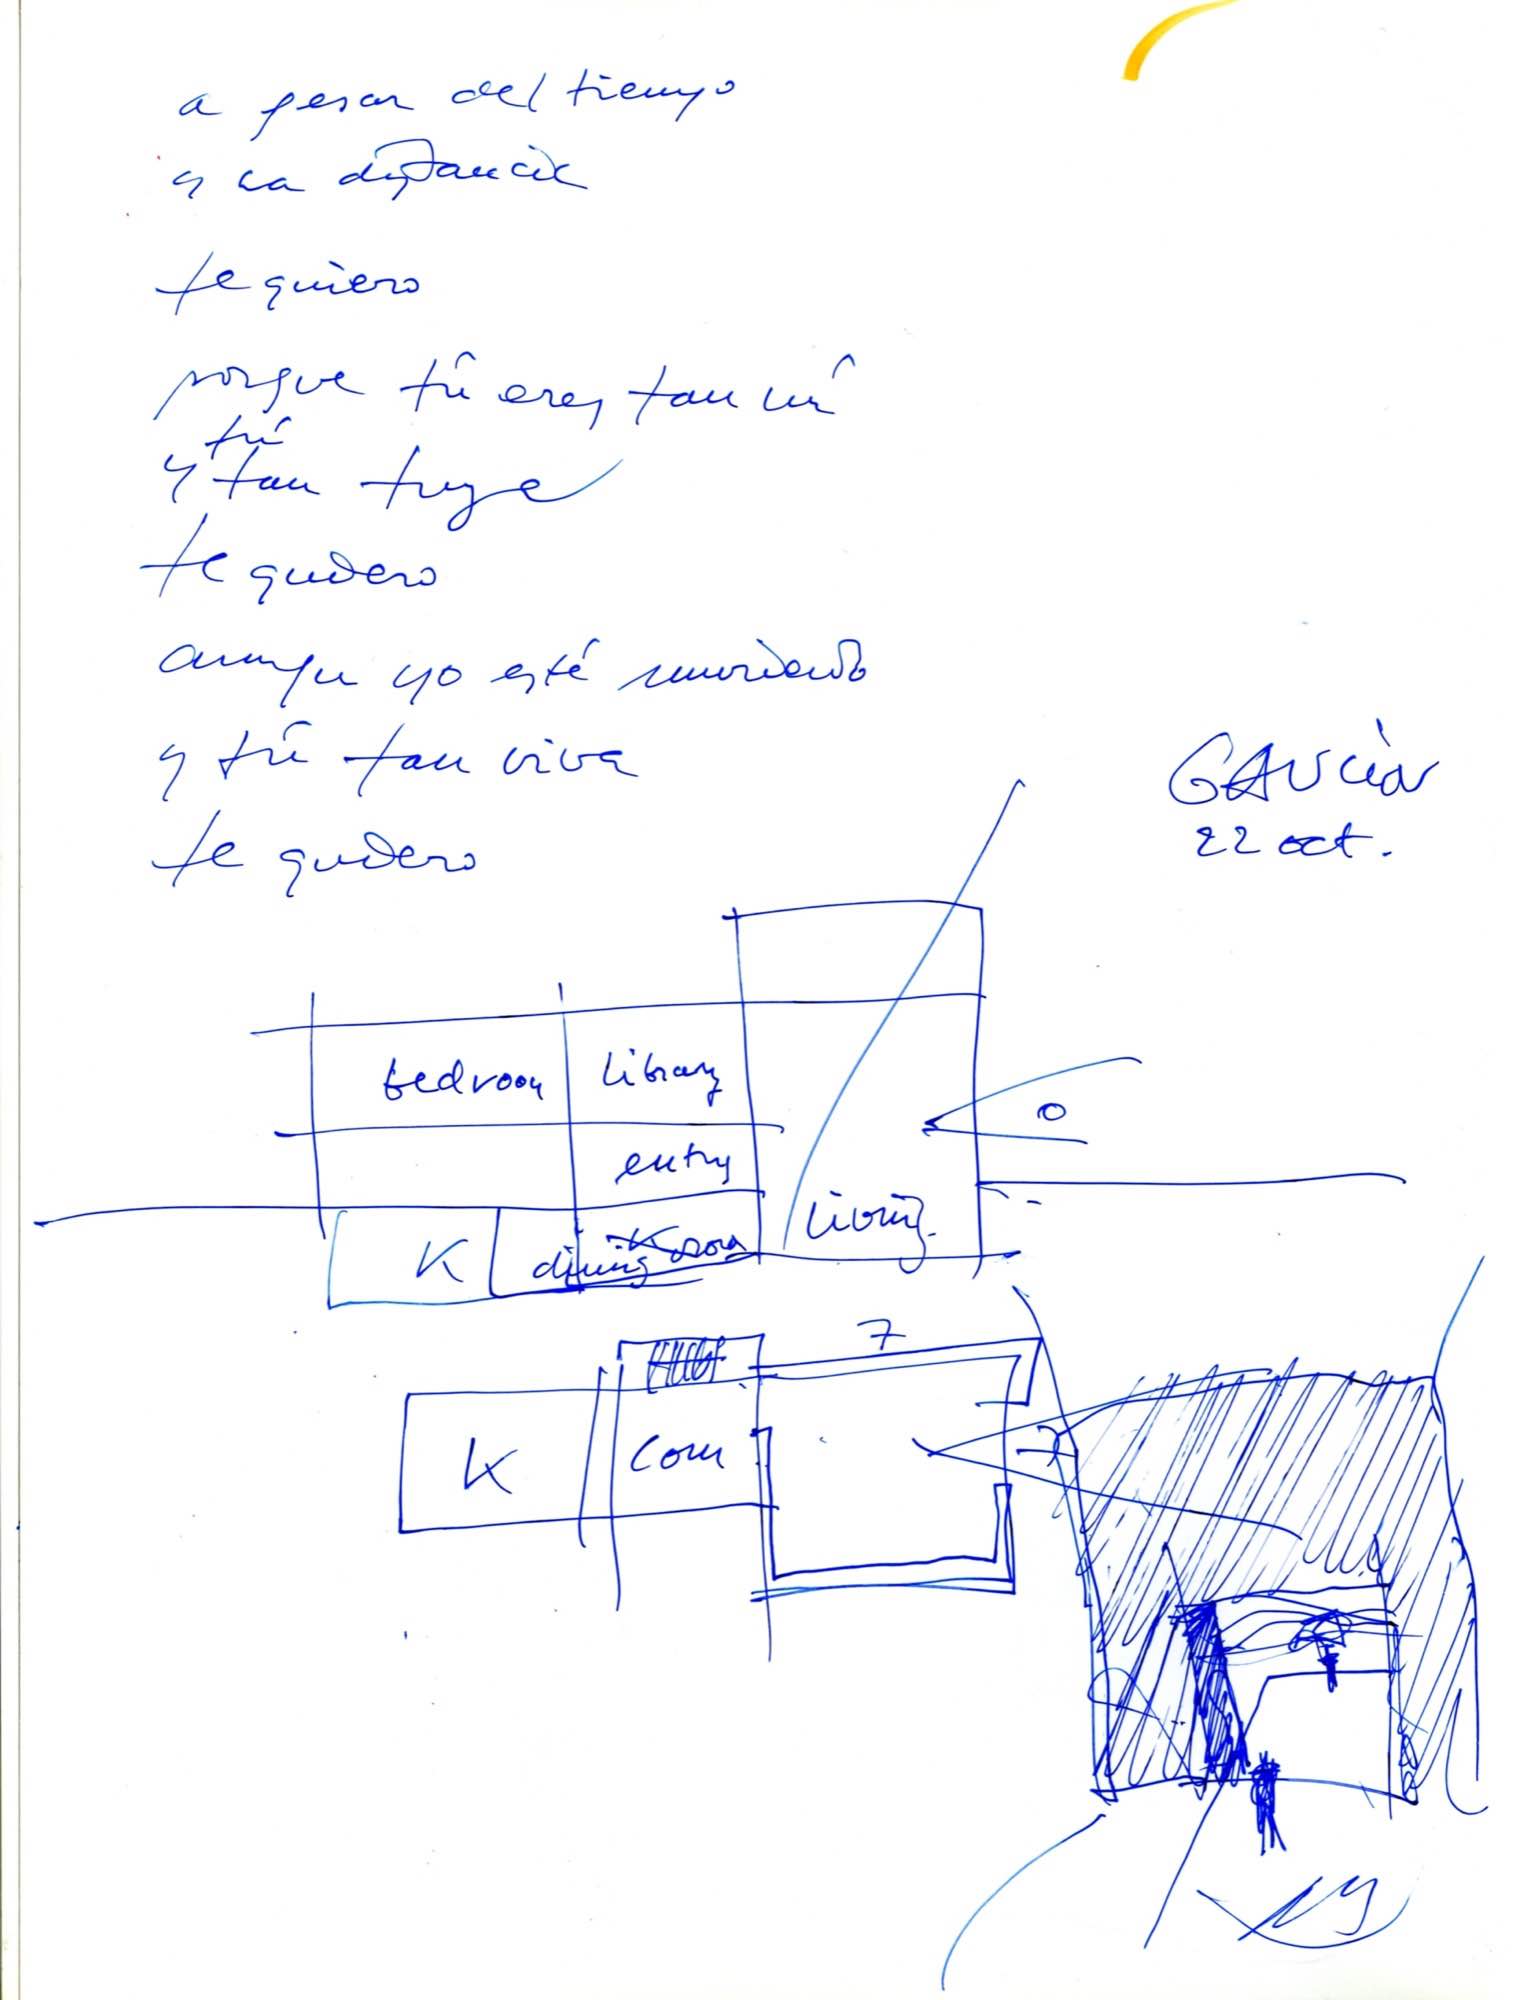 a pesar del tiempo
y la distancia
te quiero
porque tú eres tan tú
y tan tuya
te quiero
aunque yo esté muriendo
y tú tan viva
te quiero
GAUCÍN
22 oct.
bedroom library
entry
living
K dining
7
K com